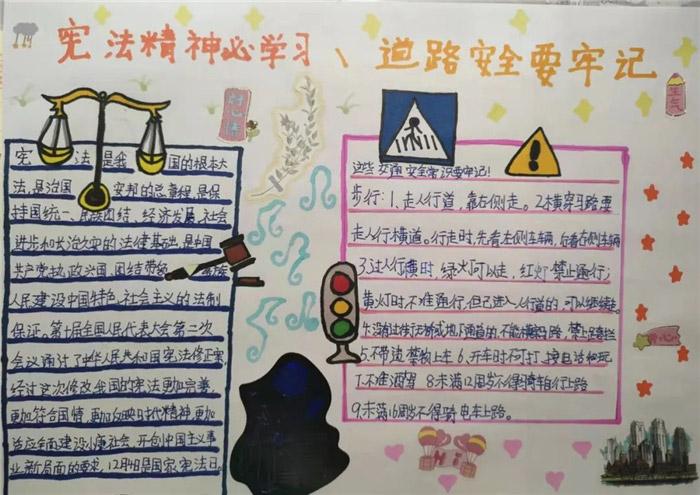 宪法精神必学习、道路安全要牢记
宪 法 是我 国的根本大
法,是治国 安邦的总章程,是保
持国统一、民族团结、经济发展、社会
进步和长治久安的法律基础,是中国
共产党执政兴国、团结带领 族
人民建设中国特色社会主义的法制
保证。第十届全国人民代表大会第二次
会议通过了中华人民共和国宪法修正案
经过这次修改我国的宪法更加完善
更加符合国情,更加反映时代精神,更加
适应全面建设小康社会、开创中国主义事
业新局面的要求,12月4日是国家宪法日。
这些交通安全常识要牢记!
步行:1、走人行道,靠右侧走。2、横穿马路要
走人行横道。行走时,先看左侧车辆,后看右侧车辆
3.过人行横时,绿灯可以走,红灯禁止通行;
黄灯时不准通行,但已进入人行道的,可以继续走。
5.不带违禁物上车 6.开车时不可打、接电话
7.不准酒驾 8.未满12周岁不得骑自行上路
9.未满16周岁不得骑电车上路。
生气
Hi